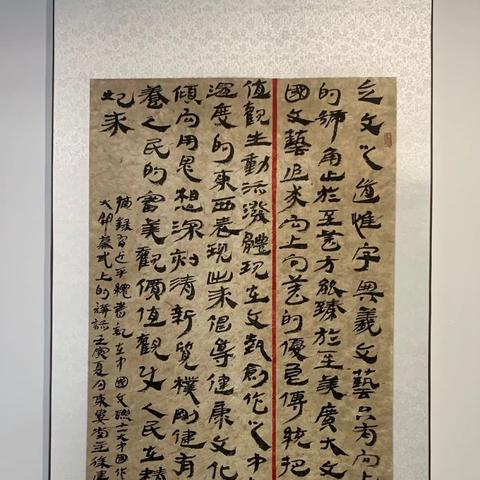 立文之道惟字與義文藝只有向上
的號角止於至善方能臻於至美廣大文
國文藝追求向上向善的優良傳統把
值觀生動活潑體現在文藝創作之中
溫度的東西表現出來倡導健康文化
傾向用思想深刻清新質樸剛健有
養人民的審美觀價值觀使人民在精
起來
摘錄習近平總書記在中國文聯十一大中國作
式上的講話壬寅夏月東